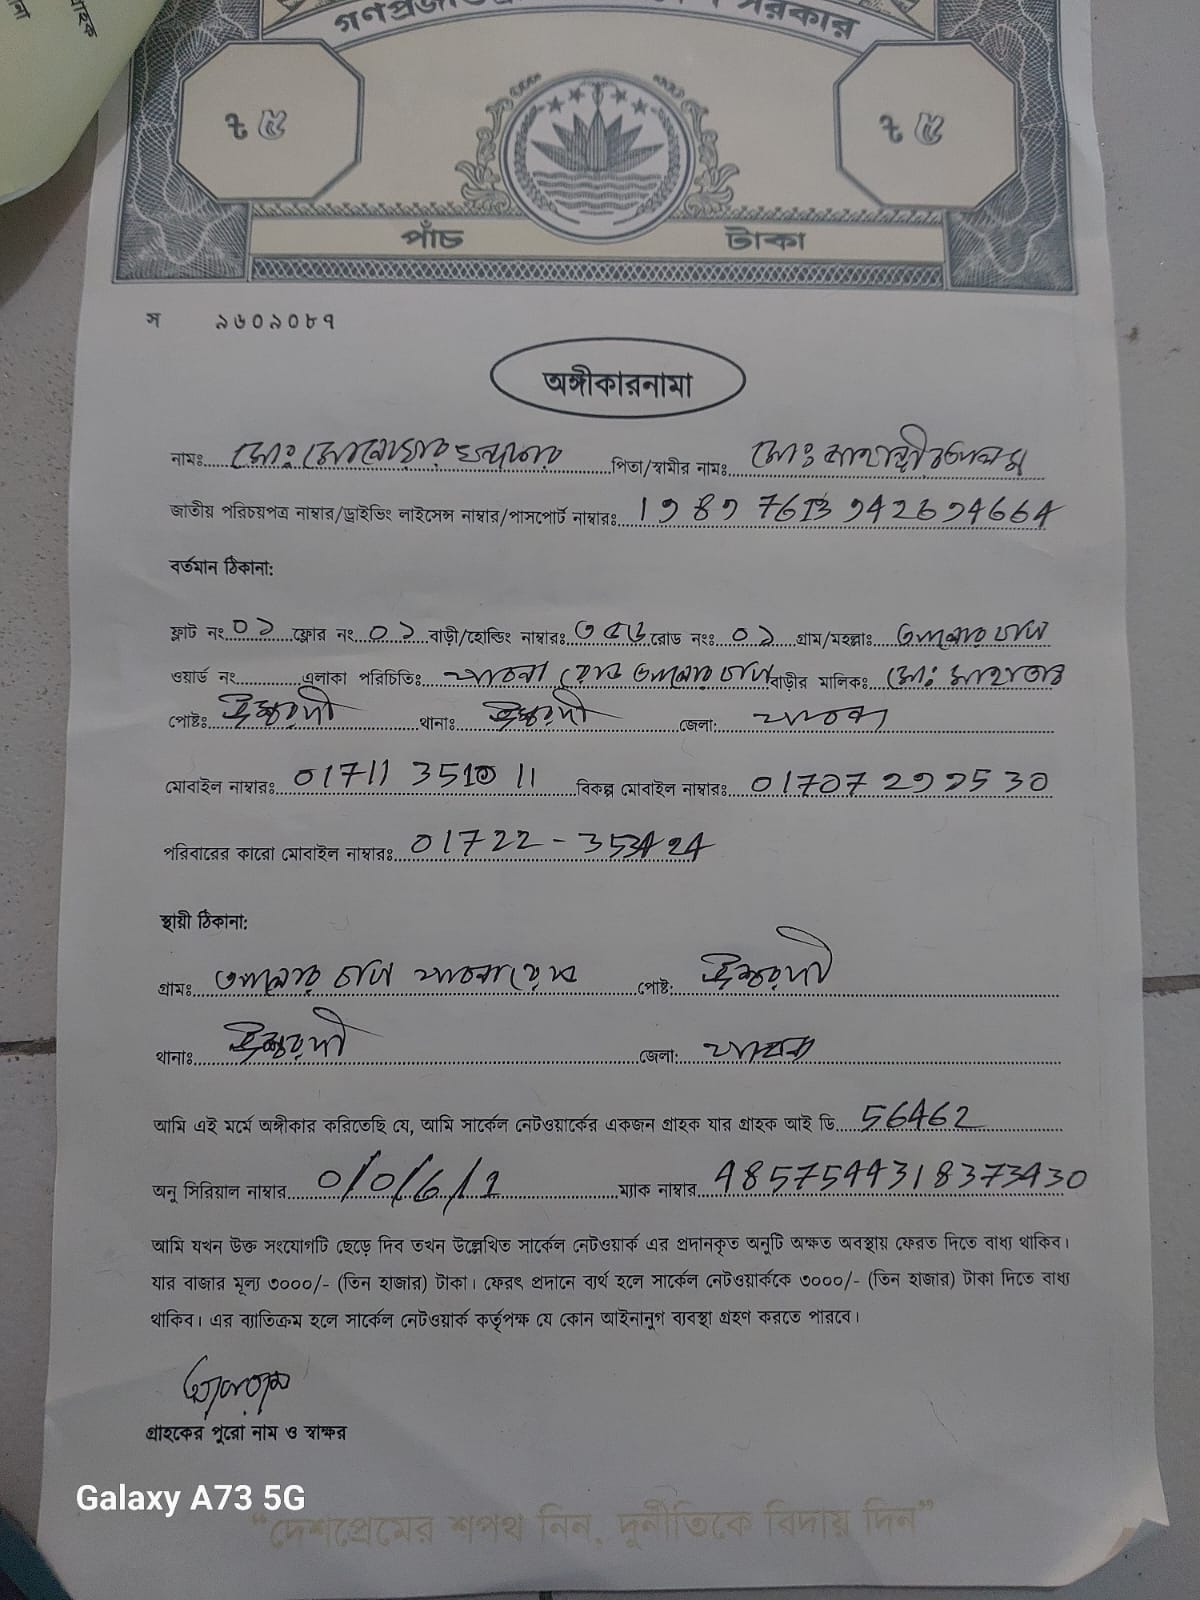 গণপ্রজাতন্ত্রী সরকার
৳ ৫ ৳ ৫
পাঁচ টাকা
স ৯৬০৯০৮৭
অঙ্গীকারনামা
নামঃ মোঃ মোনোহার পিতা/স্বামীর নামঃ মোঃ
জাতীয় পরিচয়পত্র নাম্বার/ড্রাইভিং লাইসেন্স নাম্বার/পাসপোর্ট নাম্বারঃ
বর্তমান ঠিকানা:
ফ্লাট নং ০১ ফ্লোর নং ০১ বাড়ী/হোল্ডিং নাম্বারঃ ৩৫৬ রোড নংঃ ০১ গ্রাম/মহল্লাঃ
ওয়ার্ড নং এলাকা পরিচিতিঃ পাবনা রোড বাড়ীর মালিকঃ মোঃ
পোষ্টঃ ঈশ্বরদী থানাঃ ঈশ্বরদী জেলা: পাবনা
মোবাইল নাম্বারঃ 01711 351011 বিকল্প মোবাইল নাম্বারঃ 01707 299530
পরিবারের কারো মোবাইল নাম্বারঃ 01722-353424
স্থায়ী ঠিকানা:
গ্রামঃ পাবনা রোড পোষ্ট: ঈশ্বরদী
থানাঃ ঈশ্বরদী জেলা: পাবনা
আমি এই মর্মে অঙ্গীকার করিতেছি যে, আমি সার্কেল নেটওয়ার্কের একজন গ্রাহক যার গ্রাহক আই ডি 56462
অনু সিরিয়াল নাম্বার 0/0/6/1 ম্যাক নাম্বার 4857544318373430
আমি যখন উক্ত সংযোগটি ছেড়ে দিব তখন উল্লেখিত সার্কেল নেটওয়ার্ক এর প্রদানকৃত অনুটি অক্ষত অবস্থায় ফেরত দিতে বাধ্য থাকিব।
যার বাজার মূল্য ৩০০০/- (তিন হাজার) টাকা। ফেরৎ প্রদানে ব্যর্থ হলে সার্কেল নেটওয়ার্ককে ৩০০০/- (তিন হাজার) টাকা দিতে বাধ্য
থাকিব। এর ব্যাতিক্রম হলে সার্কেল নেটওয়ার্ক কর্তৃপক্ষ যে কোন আইনানুগ ব্যবস্থা গ্রহণ করতে পারবে।
গ্রাহকের পুরো নাম ও স্বাক্ষর
Galaxy A73 5G
“দেশপ্রেমের শপথ নিন, দুর্নীতিকে বিদায় দিন”